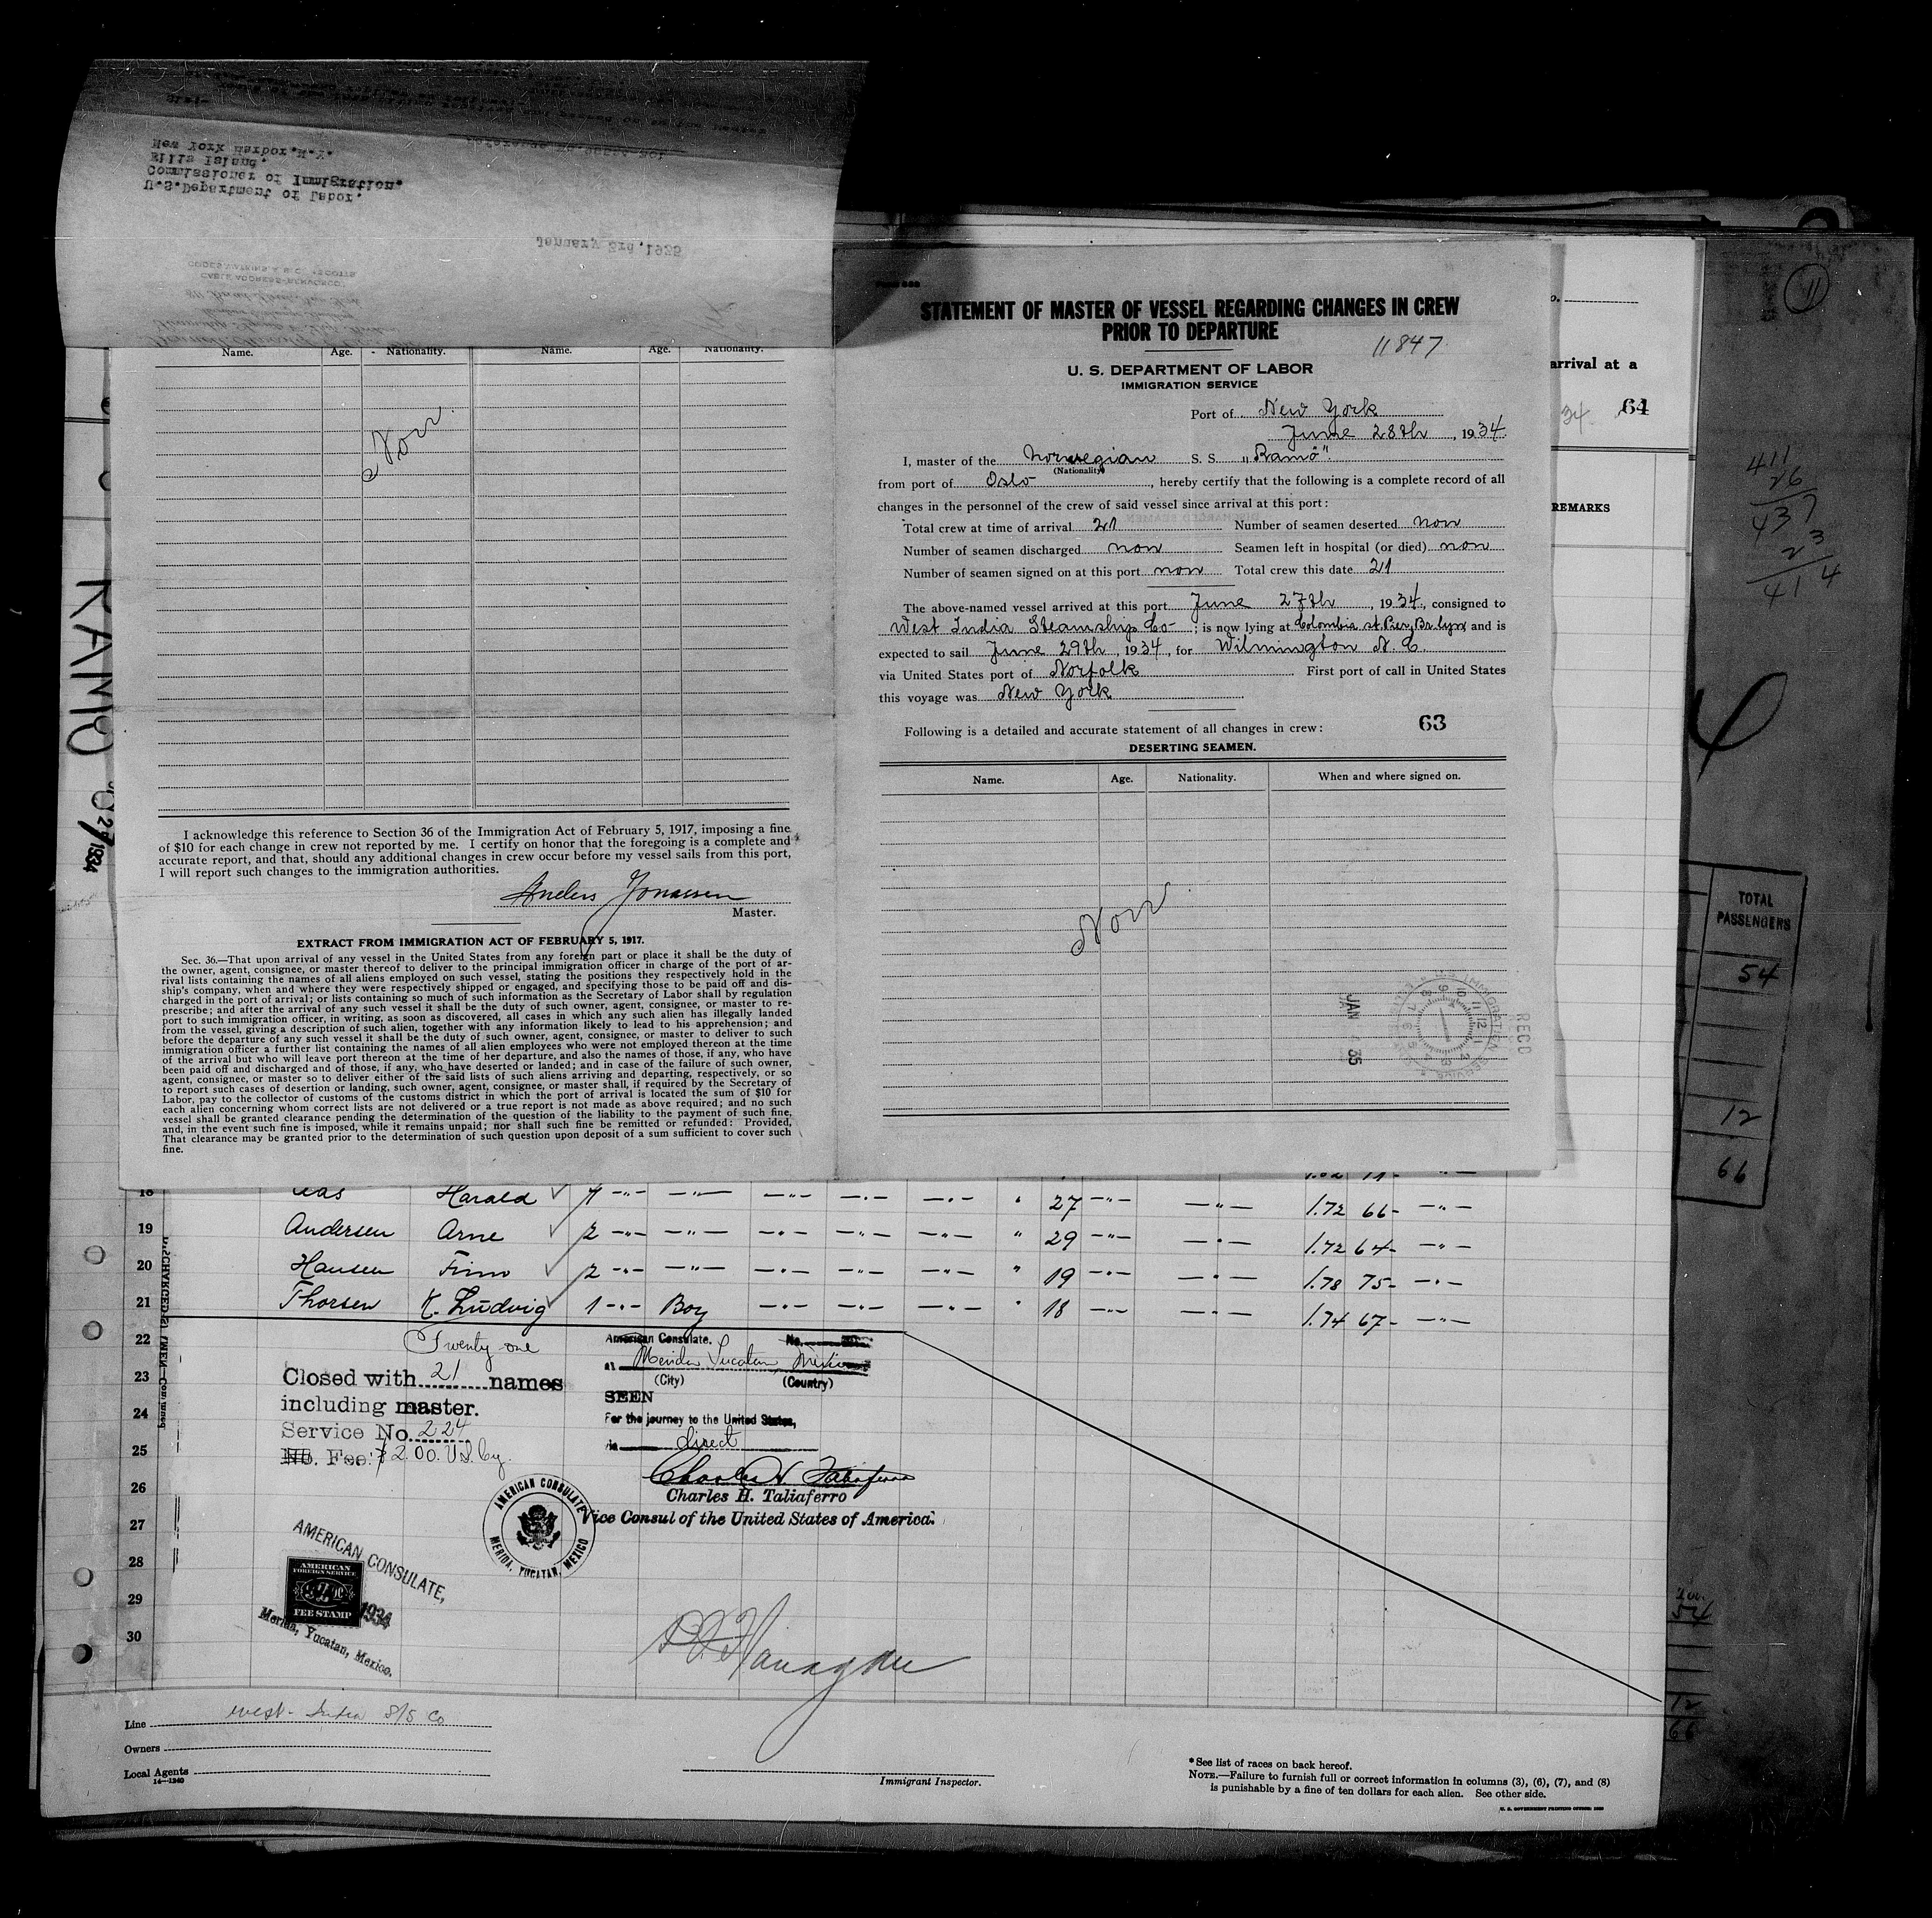 U.S.Department of Labor.
Commissioner of Immigration.
Ellis Island.
New York Harbor.N.Y.
January 3rd,1935
Name. Age. Nationality. Name. Age. Nationality.
Non
I acknowledge this reference to Section 36 of the Immigration Act of February 5, 1917, imposing a fine
of $10 for each change in crew not reported by me. I certify on honor that the foregoing is a complete and
accurate report, and that, should any additional changes in crew occur before my vessel sails from this port,
I will report such changes to the immigration authorities.
Anders Jonassen
Master.
EXTRACT FROM IMMIGRATION ACT OF FEBRUARY 5, 1917.
Sec. 36.—That upon arrival of any vessel in the United States from any foreign part or place it shall be the duty of
the owner, agent, consignee, or master thereof to deliver to the principal immigration officer in charge of the port of ar-
rival lists containing the names of all aliens employed on such vessel, stating the positions they respectively hold in the
ship's company, when and where they were respectively shipped or engaged, and specifying those to be paid off and dis-
charged in the port of arrival; or lists containing so much of such information as the Secretary of Labor shall by regulation
prescribe; and after the arrival of any such vessel it shall be the duty of such owner, agent, consignee, or master to re-
port to such immigration officer, in writing, as soon as discovered, all cases in which any such alien has illegally landed
from the vessel, giving a description of such alien, together with any information likely to lead to his apprehension; and
before the departure of any such vessel it shall be the duty of such owner, agent, consignee, or master to deliver to such
immigration officer a further list containing the names of all alien employees who were not employed thereon at the time
of the arrival but who will leave port thereon at the time of her departure, and also the names of those, if any, who have
been paid off and discharged and of those, if any, who have deserted or landed; and in case of the failure of such owner,
agent, consignee, or master so to deliver either of the said lists of such aliens arriving and departing, respectively, or so
to report such cases of desertion or landing, such owner, agent, consignee, or master shall, if required by the Secretary of
Labor, pay to the collector of customs of the customs district in which the port of arrival is located the sum of $10 for
each alien concerning whom correct lists are not delivered or a true report is not made as above required; and no such
vessel shall be granted clearance pending the determination of the question of the liability to the payment of such fine,
and, in the event such fine is imposed, while it remains unpaid; nor shall such fine be remitted or refunded: Provided,
That clearance may be granted prior to the determination of such question upon deposit of a sum sufficient to cover such
fine.
STATEMENT OF MASTER OF VESSEL REGARDING CHANGES IN CREW
PRIOR TO DEPARTURE
11847
U. S. DEPARTMENT OF LABOR
IMMIGRATION SERVICE
Port of New York
June 28th, 1934
I, master of the Norwegian S. S. "Ramö"
(Nationality)
from port of Oslo, hereby certify that the following is a complete record of all
changes in the personnel of the crew of said vessel since arrival at this port:
Total crew at time of arrival 21 Number of seamen deserted non
Number of seamen discharged non Seamen left in hospital (or died) non
Number of seamen signed on at this port non Total crew this date 21
The above-named vessel arrived at this port June 27th, 1934, consigned to
West India Steamship Co; is now lying at Colombia st. Pier, Br. lyn and is
expected to sail June 29th, 1934, for Wilmington N. C.
via United States port of Norfolk First port of call in United States
this voyage was New York
Following is a detailed and accurate statement of all changes in crew: 63
DESERTING SEAMEN.
Name. Age. Nationality. When and where signed on.
Non
JAN 35
RECD
arrival at a
34 64
REMARKS
411
26
437
23
414
TOTAL
PASSENGERS
54
12
66
RAMO
1934
18 Harald 7 27 1.72 66
19 Andersen Arne 2 29 1.72 64
20 Hansen Finn 2 19 1.78 75
21 Thorsen K. Ludvig 1 Boy 18 1.74 67
22
23
24
25
26
27
28
29
30
Twenty one
Closed with 21 names
including master.
Service No. 224
No. Fee: $2.00 U.S. Cy.
American Consulate. No.
at Merida Yucatan Mexico
(City) (Country)
SEEN
For the journey to the United States,
direct
Charles H. Taliaferro
Charles H. Taliaferro
Vice Consul of the United States of America.
AMERICAN CONSULATE
MERIDA, YUCATAN, MEXICO
AMERICAN CONSULATE,
AMERICAN
FOREIGN SERVICE
FEE STAMP
1934
Merida, Yucatan, Mexico.
Line West India S/S Co
Owners
Local Agents
14—1240
Immigrant Inspector.
*See list of races on back hereof.
NOTE.—Failure to furnish full or correct information in columns (3), (6), (7), and (8)
is punishable by a fine of ten dollars for each alien. See other side.
U. S. GOVERNMENT PRINTING OFFICE